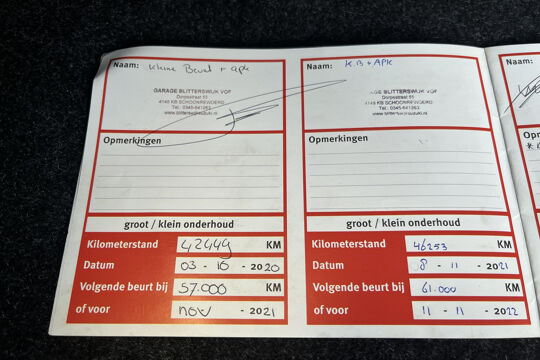 Naam: Kleine Beurt + apk
GARAGE BLITTERSWIJK VOF
Dorpsstraat 55
4145 KB SCHOONREWOERD
Tel.: 0345-641263
www.blitterswijksuzuki.nl
Opmerkingen
groot / klein onderhoud
Kilometerstand 42449 KM
Datum 03 - 10 - 2020
Volgende beurt bij 57.000 KM
of voor nov - 2021
Naam: K.B + APK
AGE BLITTERSWIJK VOF
Dorpsstraat 55
4145 KB SCHOONREWOERD
Tel.: 0345-641263
www.blitterswijksuzuki.nl
Opmerkingen
groot / klein onderhoud
Kilometerstand 46253 KM
Datum 8 - 11 - 2021
Volgende beurt bij 61.000 KM
of voor 11 - 11 - 2022
Naam: